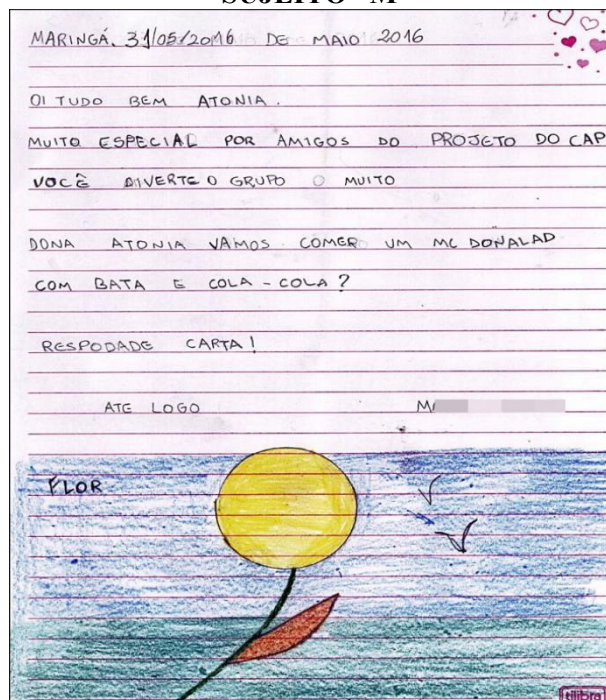 SUJEITO "M"
MARINGÁ, 31/05/2016 DE MAIO 2016
OI TUDO BEM ATONIA.
MUITO ESPECIAL POR AMIGOS DO PROJETO DO CAP
VOCÊ DIVERTE O GRUPO O MUITO
DONA ATONIA VAMOS COMER UM MC DONALAD
COM BATA E COLA-COLA?
RESPODADE CARTA!
ATE LOGO M
FLOR
tilibra